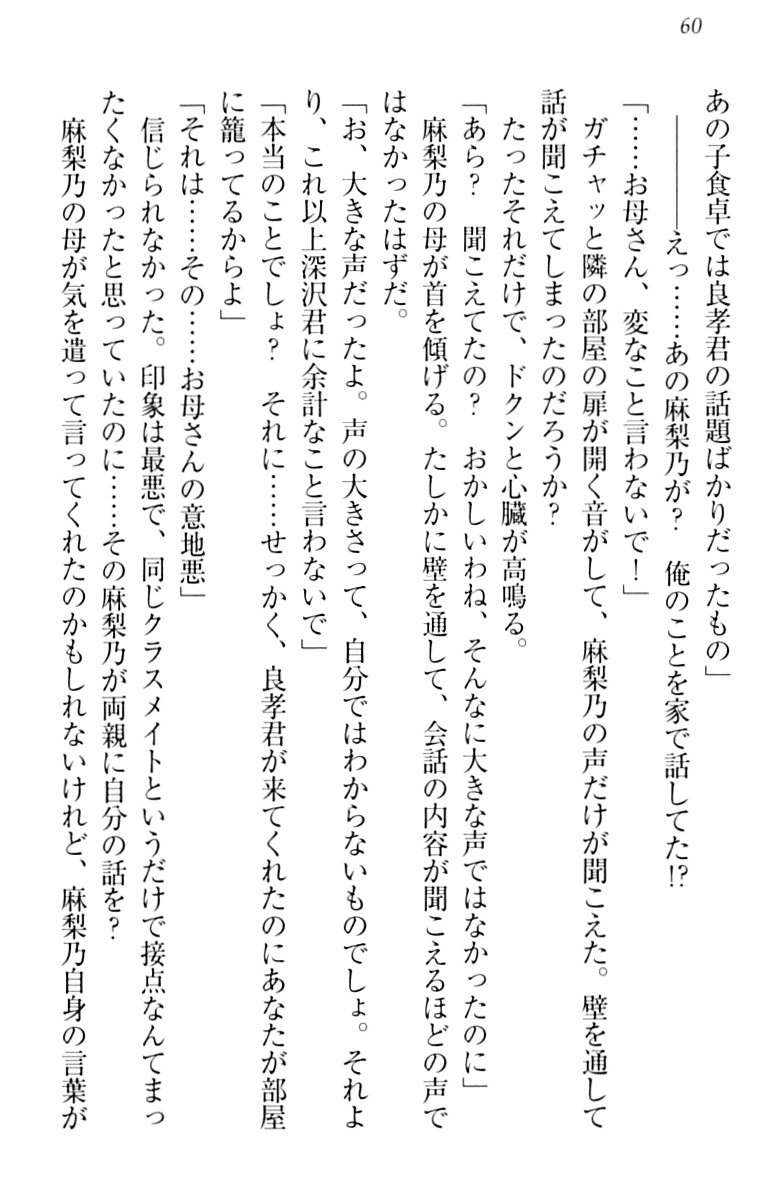 60
あの子食卓では良孝君の話題ばかりだったもの」
――――えっ……あの麻梨乃が？　俺のことを家で話してた!?
「……お母さん、変なこと言わないで！」
ガチャッと隣の部屋の扉が開く音がして、麻梨乃の声だけが聞こえた。壁を通して
話が聞こえてしまったのだろうか？
たったそれだけで、ドクンと心臓が高鳴る。
「あら？　聞こえてたの？　おかしいわね、そんなに大きな声ではなかったのに」
麻梨乃の母が首を傾げる。たしかに壁を通して、会話の内容が聞こえるほどの声で
はなかったはずだ。
「お、大きな声だったよ。声の大きさって、自分ではわからないものでしょ。それよ
り、これ以上深沢君に余計なこと言わないで」
「本当のことでしょ？　それに……せっかく、良孝君が来てくれたのにあなたが部屋
に籠ってるからよ」
「それは……その……お母さんの意地悪」
信じられなかった。印象は最悪で、同じクラスメイトというだけで接点なんてまっ
たくなかったと思っていたのに……その麻梨乃が両親に自分の話を？
麻梨乃の母が気を遣って言ってくれたのかもしれないけれど、麻梨乃自身の言葉が